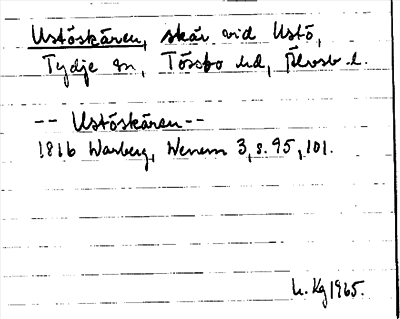 Ustöskären, skär vid Ustö,
Tydje sn, Tössbo hd, Älvsb l.
-- Ustöskären --
1816 Warberg, Wenern 3, s. 95, 101.
h. Kg 1965.